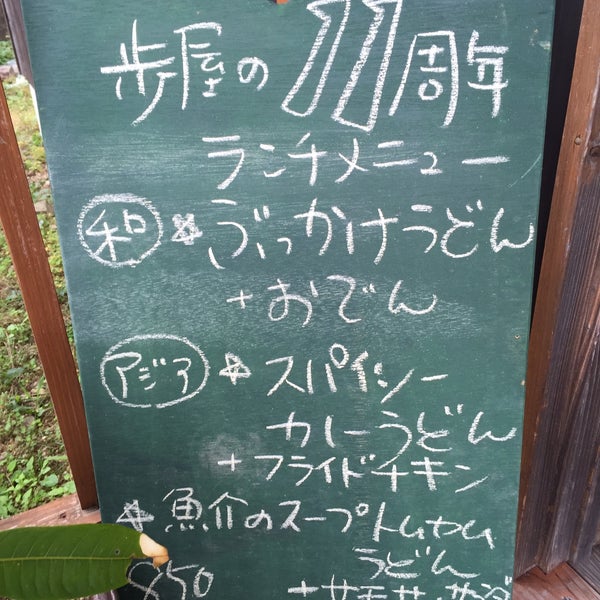 歩屋の11周年
ランチメニュー
和 ☆ ぶっかけうどん
+おでん
アジア ☆ スパイシー
カレーうどん
+フライドチキン
☆ 魚介のスープトムヤム
うどん
850 +サモサ